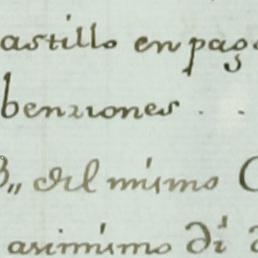 astillo en pag
benziones . .
B,, del mismo C
asimismo di d